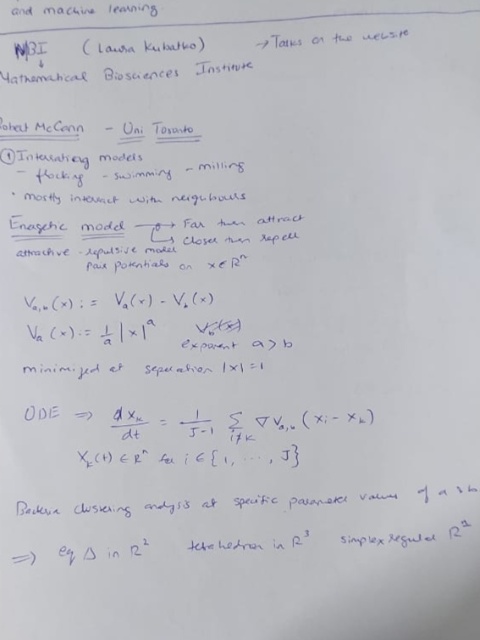 and machine learning
MBI (Laura Kubatko) → Talks on the website
↓
Mathematical Biosciences Institute
Robert McCann - Uni Toronto
① Interacting models
- flocking - swimming - milling
• mostly interact with neighbours
Energetic model → Far then attract
↳ Closer then repell
attractive - repulsive model
pair potentials on x ∈ Rⁿ
V_{a,b}(x) := V_a(x) - V_b(x)
V_a(x) := 1/a |x|^a
exponent a > b
minimized at seperation |x| = 1
ODE ⇒ dX_k/dt = 1/(J-1) Σ_{i≠k} ∇V_{a,b}(X_i - X_k)
X_k(t) ∈ Rⁿ for i ∈ {1, ..., J}
clustering analysis at specific parameter values of a
⇒ eq Δ in R² tetrahedron in R³ simplex regular Rⁿ